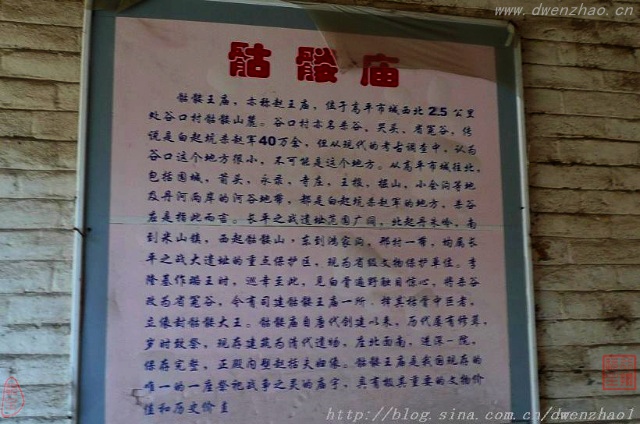 www.dwenzhao.cn
骷髅庙
骷髅王庙，亦称赵王庙，位于高平市城西北2.5公里
处谷口村骷髅山麓。谷口村亦名杀谷，哭头，省冤谷，传
说是白起坑杀赵军40万余，但从现代的考古调查中，认为
谷口这个地方很小，不可能是这个地方。从高平市城往北，
包括围城，箭头，永录，寺庄，王报，掘山，小会沟等地
及丹河两岸的河谷地带，都是白起坑杀赵军的地方，杀谷
应是指此而言。长平之战遗址范围广阔，北起丹朱岭，南
到米山镇，西起骷髅山，东到鸿家沟，邢村一带，均属长
平之战大遗址的重点保护区，现为省级文物保护单位。李
隆基作潞王时，巡幸至此，见白骨遍野触目惊心，将杀谷
改为省冤谷，令有司建骷髅王庙一所，择其枯骨中巨者，
立像封骷髅大王。骷髅庙自唐代创建以来，历代屡有修葺，
岁时致祭，现存建筑为清代遗物，座北面南，进深一院，
保存完整，正殿内塑赵括夫妇像。骷髅王庙是我国现存的
唯一的一座祭祀战争之灵的庙宇，具有极其重要的文物价
值和历史价值
http://blog.sina.com.cn/dwenzhao1